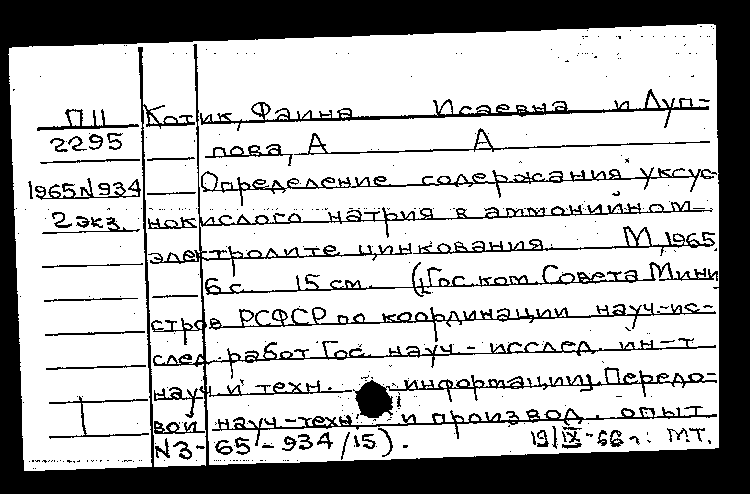 П11 Котик, Фаина Исаевна и Луп-
2295 пова, А А
1965 N 934 Определение содержания уксус
2 экз. нокислого натрия в аммонийном
электролите цинкования. М, 1965
6 с. 15 см. (Гос. ком. Совета Мини
стров РСФСР по координации науч-ис-
след. работ Гос. науч.-исслед. ин-т
науч. и техн. информации. Передо-
вой науч.-техн. и производ. опыт
N3-65-934/15).
19/IX-66 г. МТ.